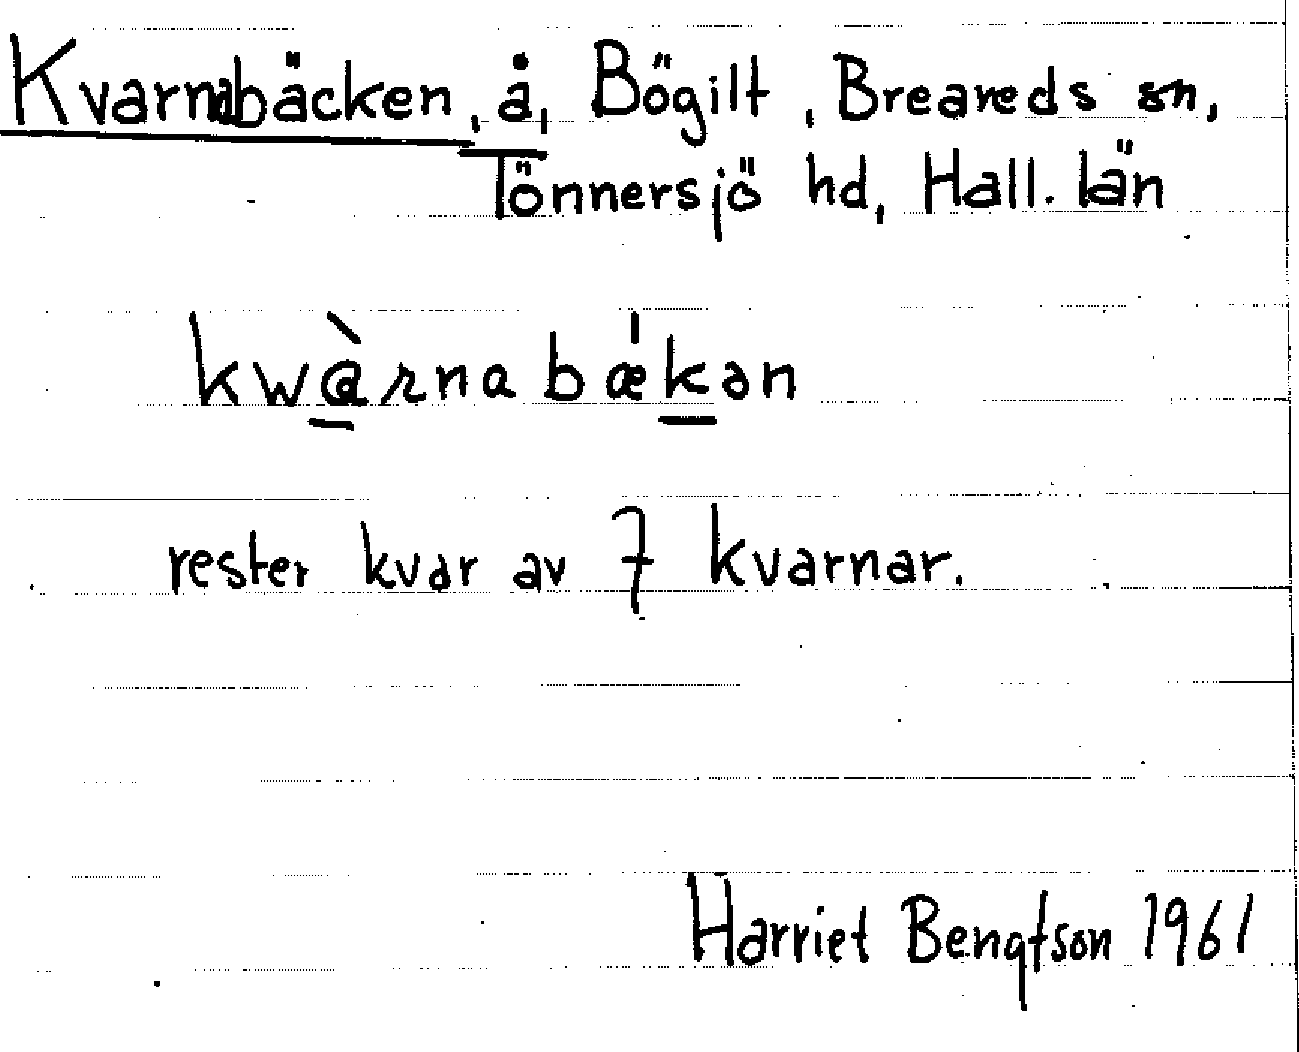 Kvarnabäcken, å, Bögilt, Breareds sn,
Tönnersjö hd, Hall. län
kwàrnabǽkən
rester kvar av 7 kvarnar.
Harriet Bengtson 1961